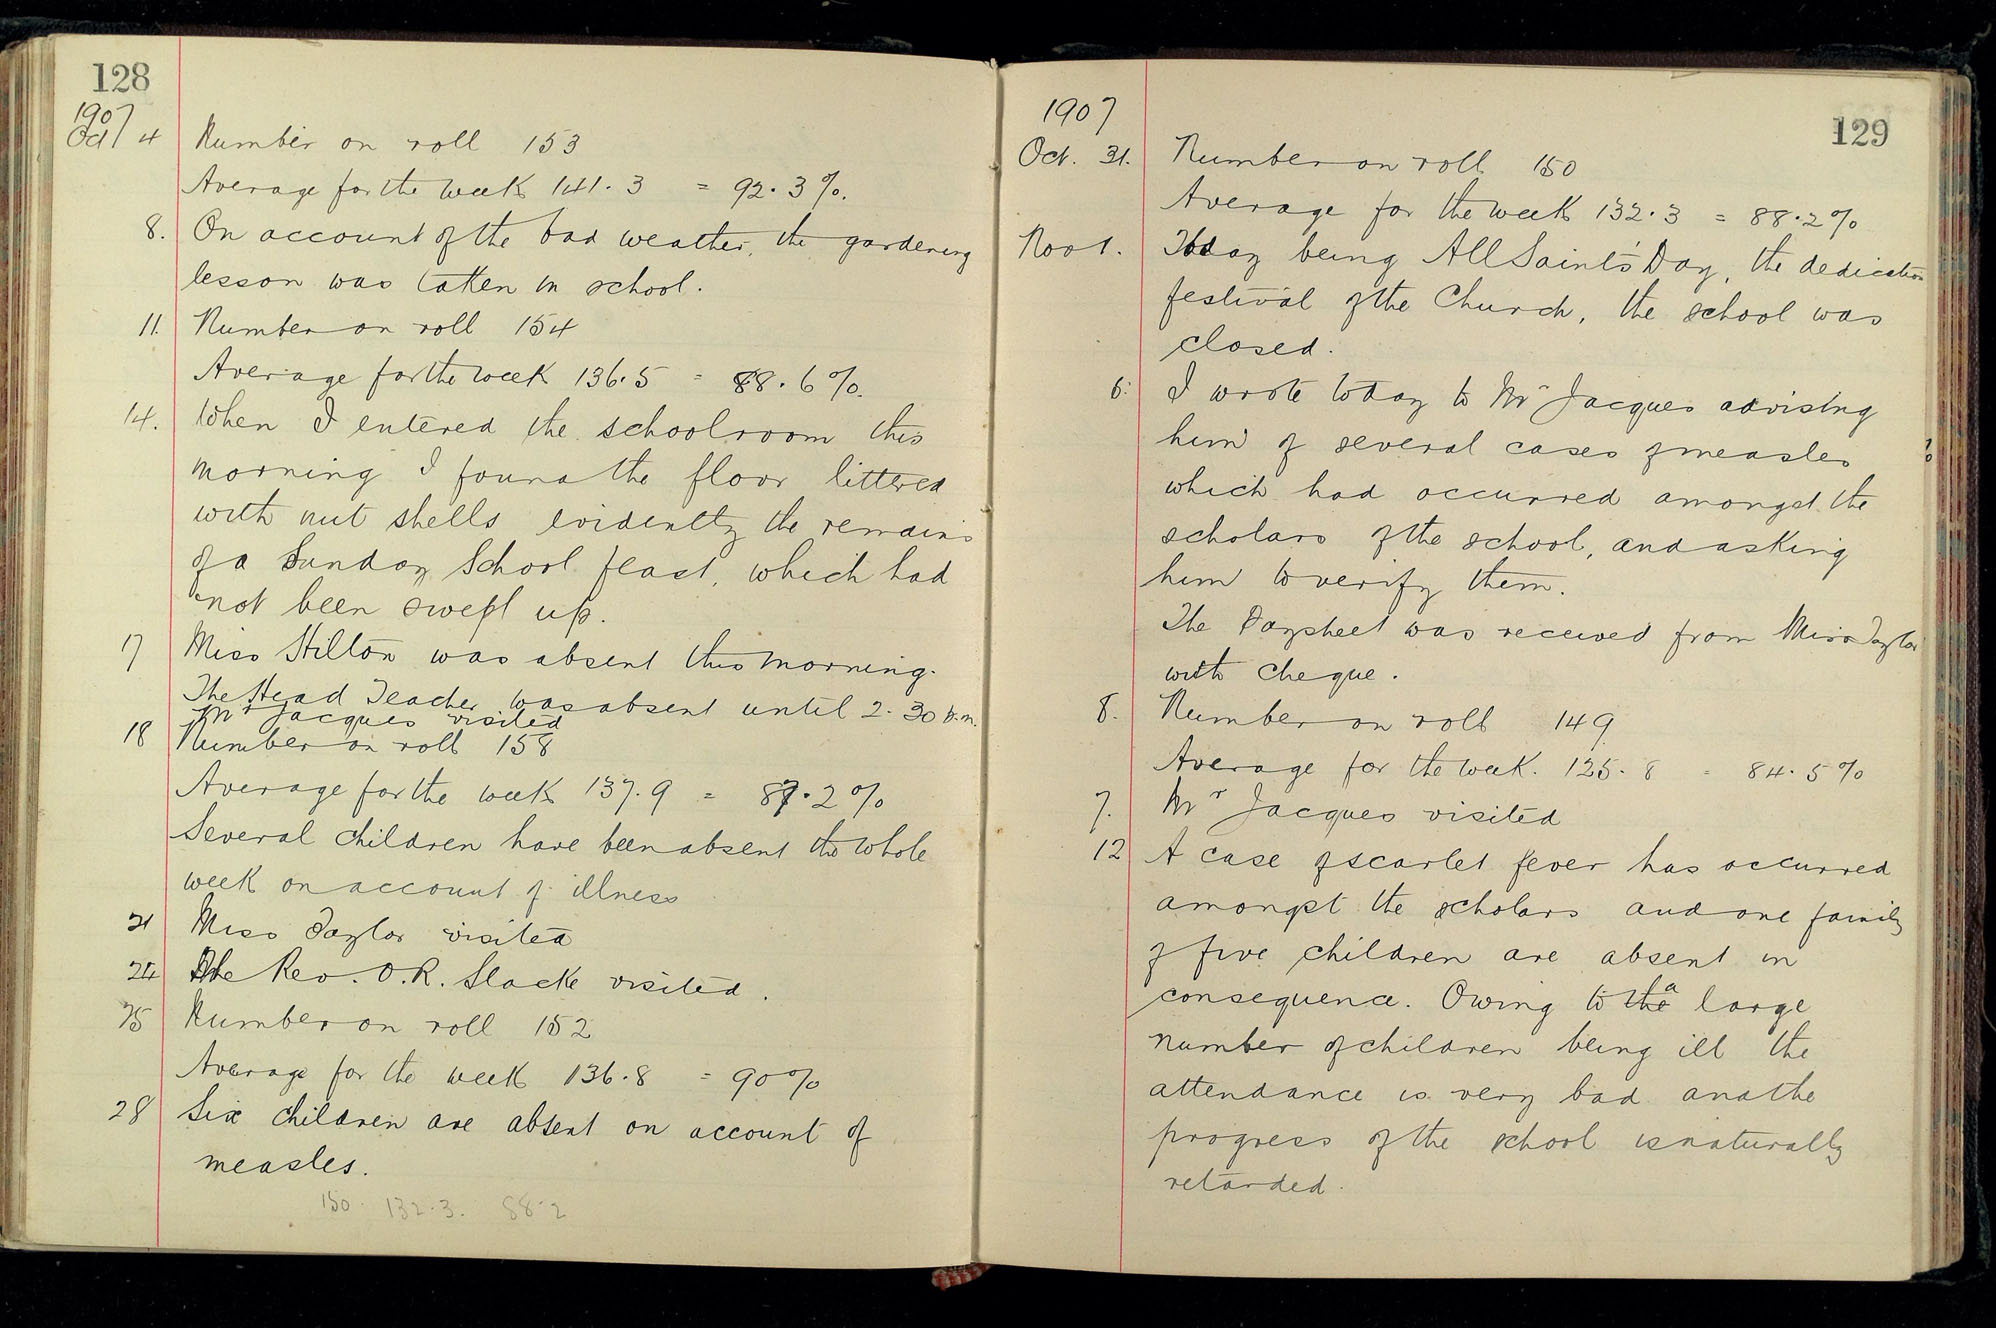 128
1907
Oct 4 Number on roll 153
Average for the week 141.3 = 92.3%.
8. On account of the bad weather, the gardening
lesson was taken in school.
11. Number on roll 154
Average for the week 136.5 = 88.6%.
14. When I entered the schoolroom this
morning I found the floor littered
with nut shells evidently the remains
of a Sunday School feast, which had
not been swept up.
17 Miss Hilton was absent this morning.
The Head Teacher was absent until 2.30 p.m.
Mr Jacques visited
18 Number on roll 158
Average for the week 137.9 = 87.2%
Several children have been absent the whole
week on account of illness
21 Miss Taylor visited
24 The Rev. O.R. Slack visited.
25 Number on roll 152
Average for the week 136.8 = 90%
28 Six children are absent on account of
measles.
150. 132.3. 88.2
129
1907
Oct. 31. Number on roll 150
Average for the week 132.3 = 88.2%
Nov 1. Today being All Saints' Day, the dedication
festival of the Church, the school was
closed.
6. I wrote today to Mr Jacques advising
him of several cases of measles
which had occurred amongst the
scholars of the school, and asking
him to verify them.
The Paysheet was received from Miss Taylor
with cheque.
8. Number on roll 149
Average for the week. 125.8 = 84.5%
7. Mr Jacques visited
12 A case of scarlet fever has occurred
amongst the scholars and one family
of five children are absent in
consequence. Owing to the a large
number of children being ill the
attendance is very bad and the
progress of the school is naturally
retarded.